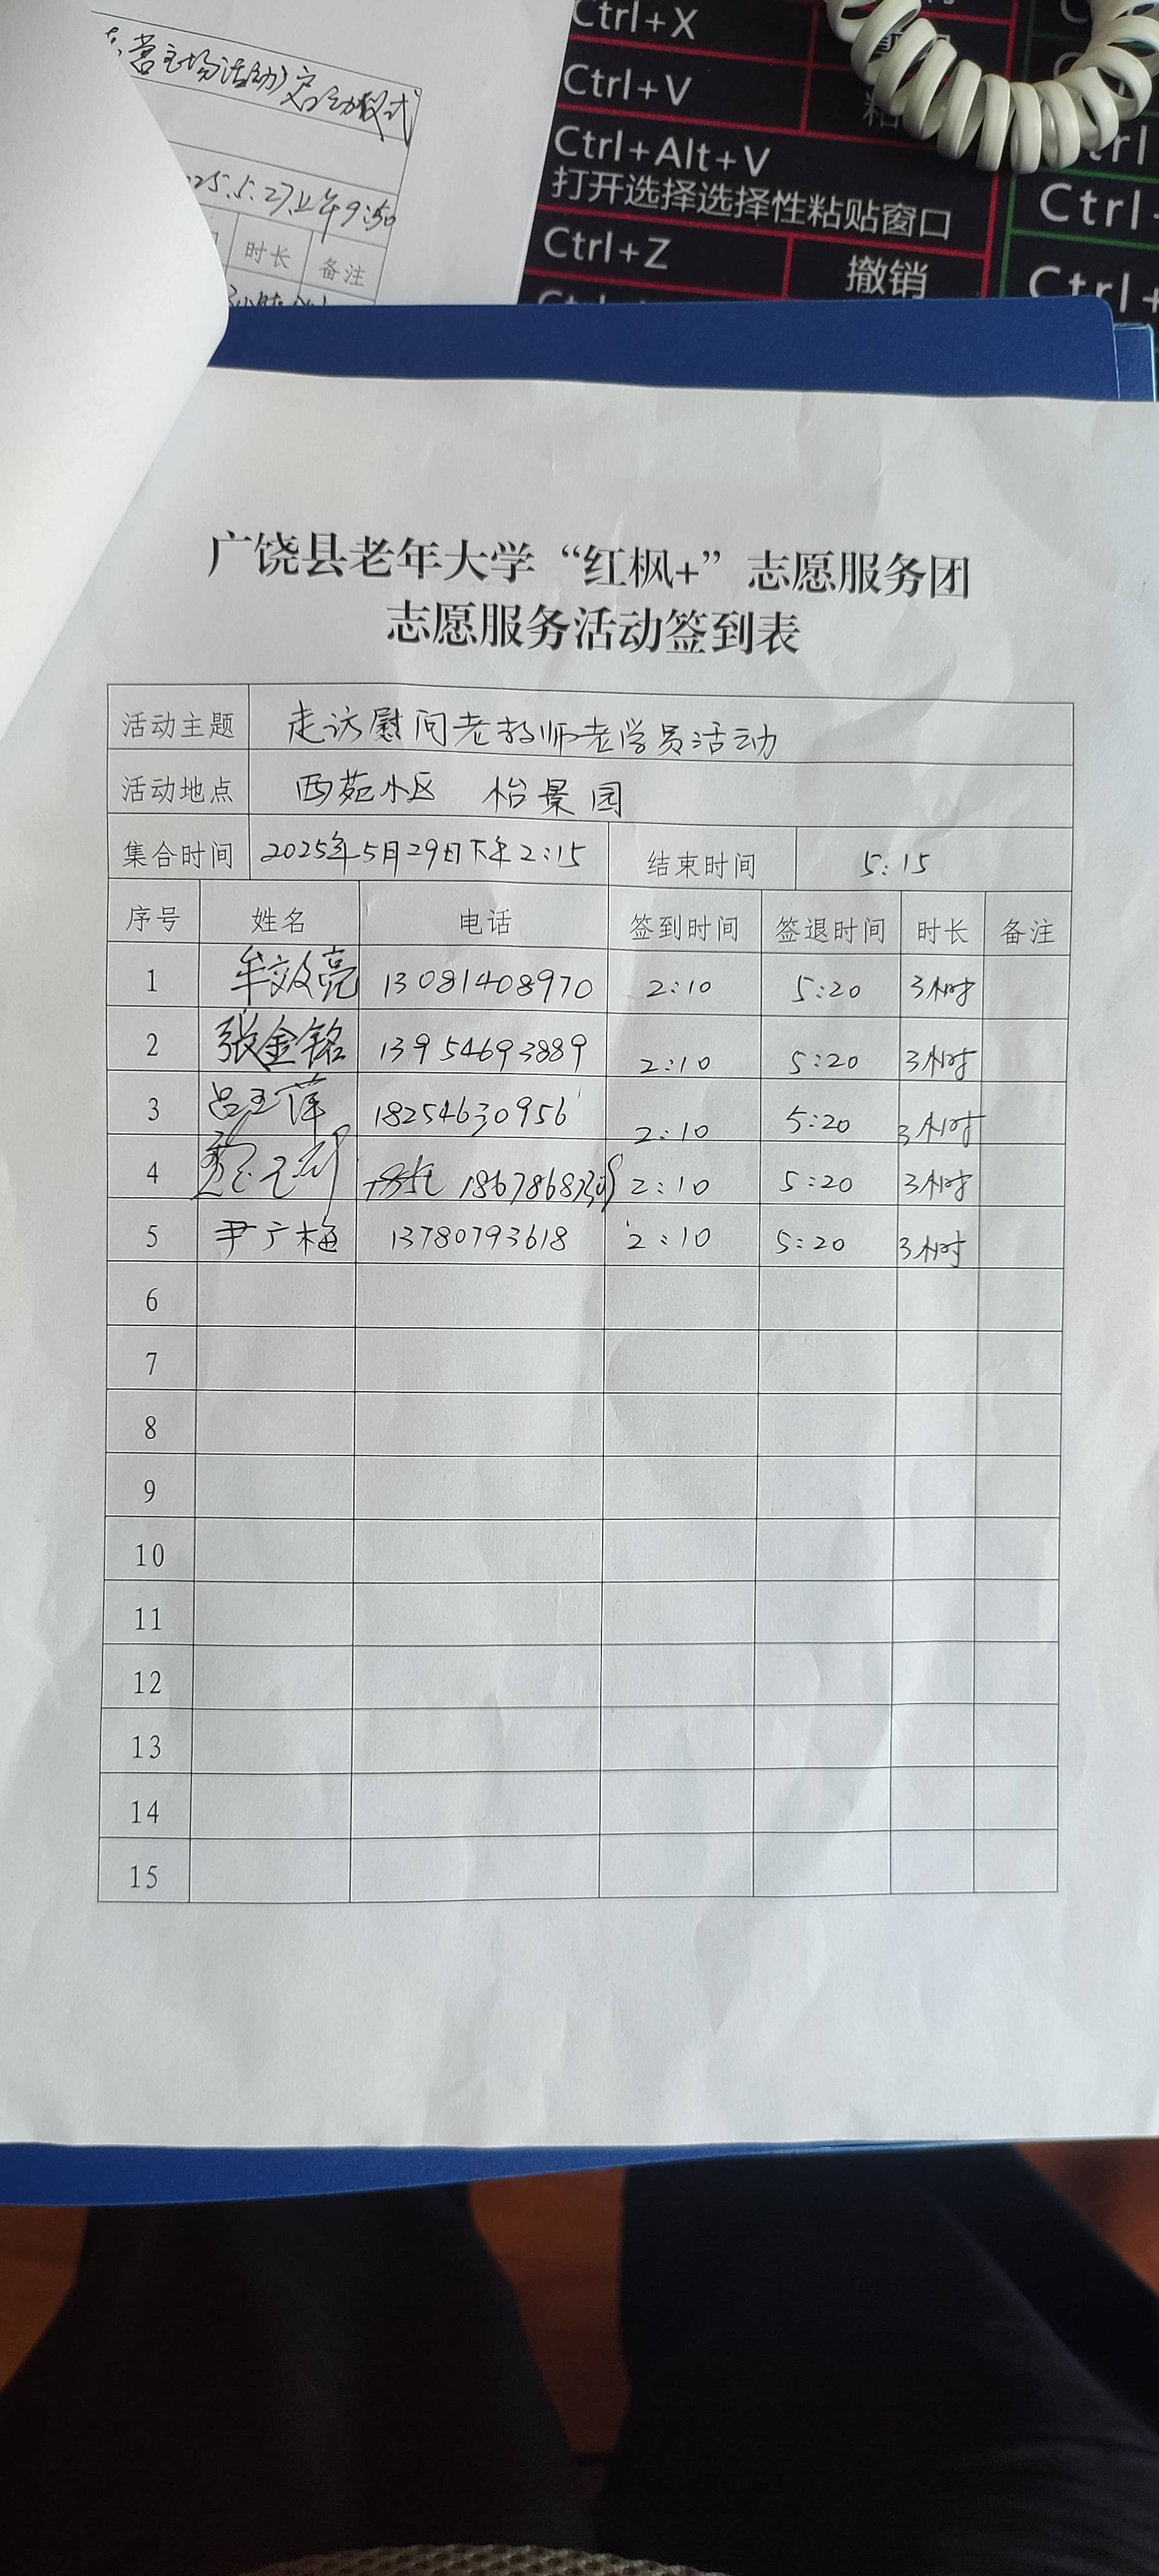 营主场活动启动仪式
25.5.27上午9:50
时长 备注
Ctrl+X
Ctrl+V
Ctrl+Alt+V
打开选择选择性粘贴窗口
Ctrl+Z 撤销
广饶县老年大学“红枫+”志愿服务团
志愿服务活动签到表
活动主题 走访慰问老教师老学员活动
活动地点 西苑小区 怡景园
集合时间 2025年5月29日下午2:15 结束时间 5:15
序号 姓名 电话 签到时间 签退时间 时长 备注
1 牟效亮 13081408970 2:10 5:20 3小时
2 张金铭 13954693889 2:10 5:20 3小时
3 吕玉萍 18254630956 2:10 5:20 3小时
4 2:10 5:20 3小时
5 尹广梅 13780793618 2:10 5:20 3小时
6
7
8
9
10
11
12
13
14
15